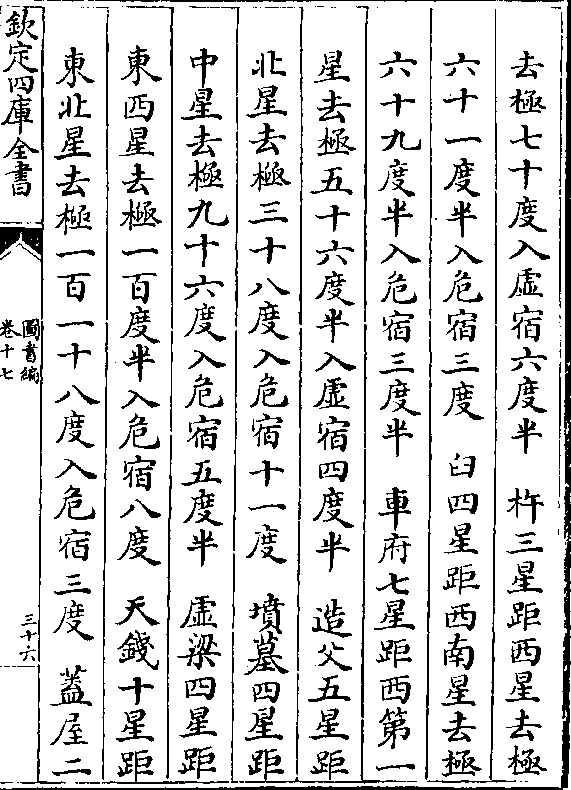 去極七十度入虛宿六度半　杵三星距西星去極
六十一度半入危宿三度　臼四星距西南星去極
六十九度半入危宿三度半　車府七星距西第一
星去極五十六度半入虛宿四度半　造父五星距
北星去極三十八度入危宿十一度　墳墓四星距
中星去極九十六度入危宿五度半　虛梁四星距
東西星去極一百度半入危宿八度　天錢十星距
東北星去極一百一十八度入危宿三度　蓋屋二
欽定四庫全書
圖書編
卷十七
三十六